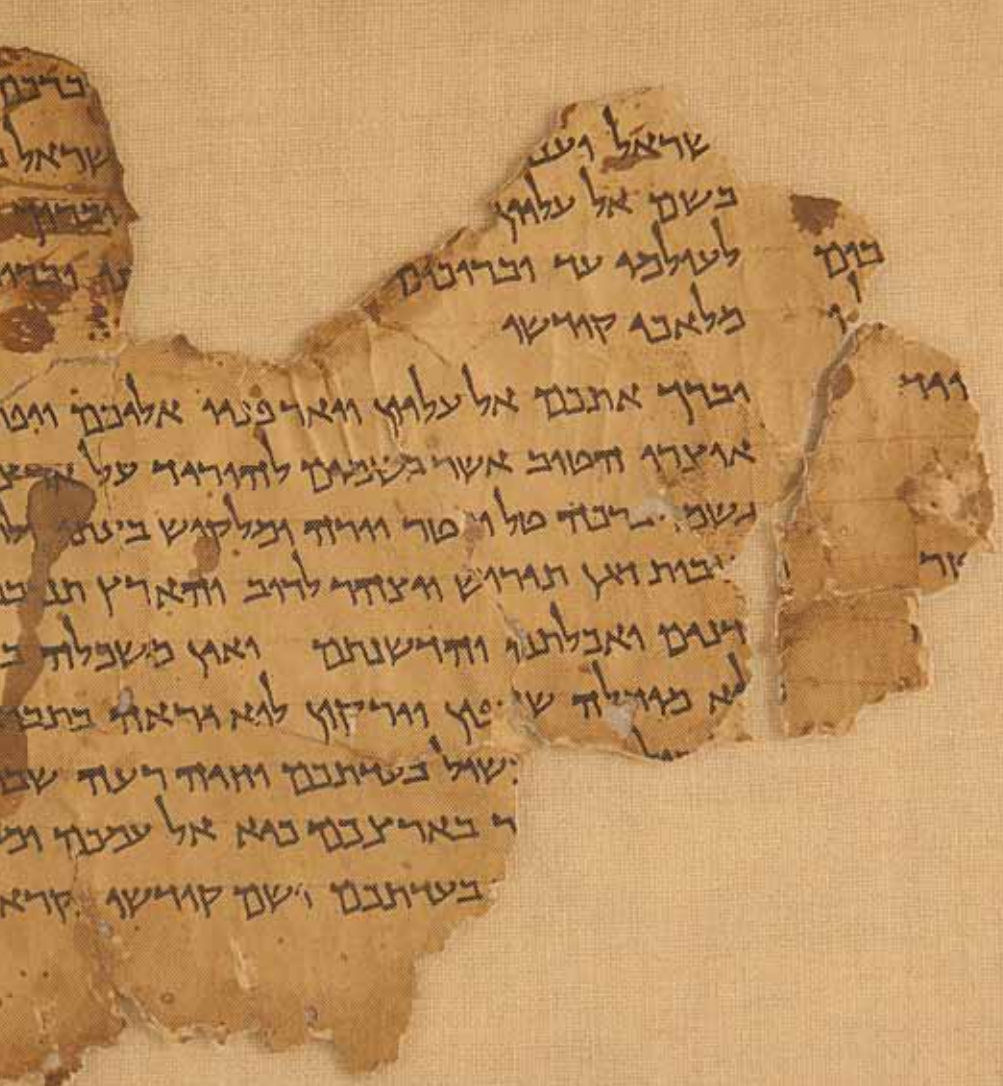 ברכם
שראל וענ שראל
בשם אל עליון וברוך
לעולמי עד וברוכים וברו
מלאכי קודשו
יברך אתכם אל עליון ויאר פניו אליכם ויפת
אוצרו הטוב אשר בשמים להוריד על ארצ
גשמי ברכה טל ומטר יורה ומלקוש בעתו ול
בות דגן תירוש ויצהר לרוב והארץ תנובב
דנים ואכלתם והדשנתם ואין משכלה ב
לא מוחלה שדפון וירקון לוא יראה בתבו
שול בעדתכם וחיה רעה שב
ר בארצכם כיא אל עמכם ומ
בעדתכם ושם קודשו נקרא